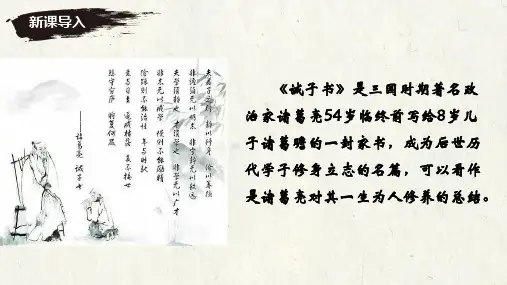 新课导入
夫君子之行 静以修身 俭以养德
非澹泊无以明志 非宁静无以致远
夫学须静也 才须学也 非学无以广才
非志无以成学 慢则不能励精
险躁则不能治性 年与时驰
意与日去 遂成枯落 多不接世
悲守穷庐 将复何及
——诸葛亮 诫子书
《诫子书》是三国时期著名政
治家诸葛亮54岁临终前写给8岁儿
子诸葛瞻的一封家书，成为后世历
代学子修身立志的名篇，可以看作
是诸葛亮对其一生为人修养的总结。